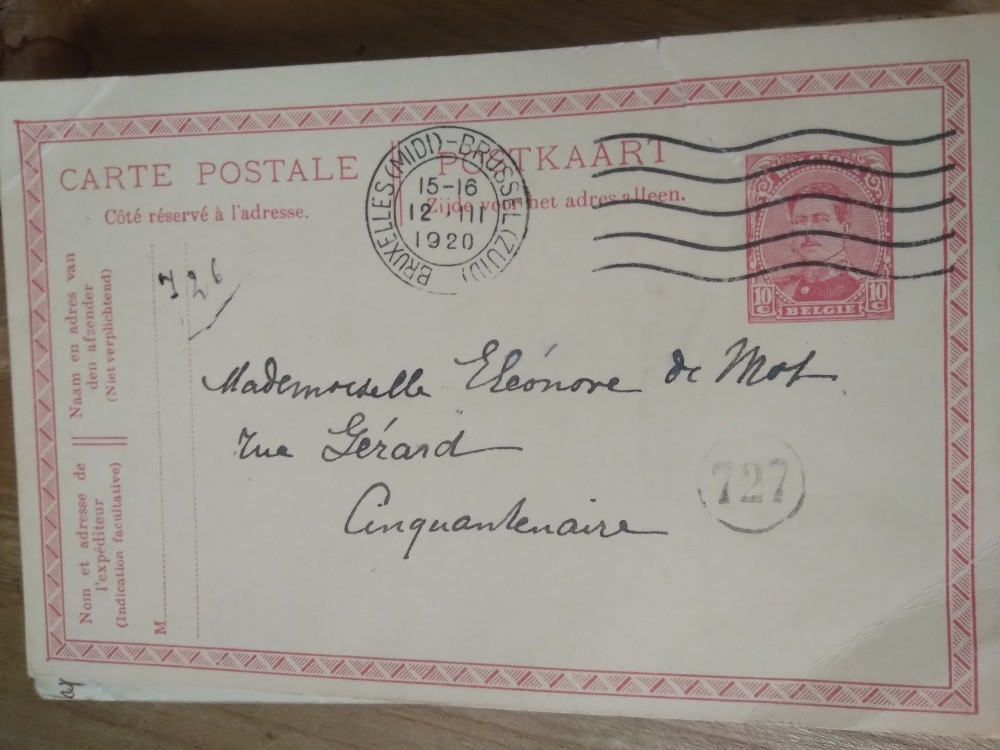 CARTE POSTALE || POSTKAART
Côté réservé à l'adresse.
Zijde voor het adres alleen.
BRUXELLES (MIDI)-BRUSSEL (ZUID)
15-16
12 III
1920
10 C BELGIE 10 C
Naam en adres van
den afzender
(Niet verplichtend)
Nom et adresse de
l'expéditeur
(Indication facultative)
M
726
Mademoiselle Eléonore de Mot
rue Gérard
Cinquantenaire
727